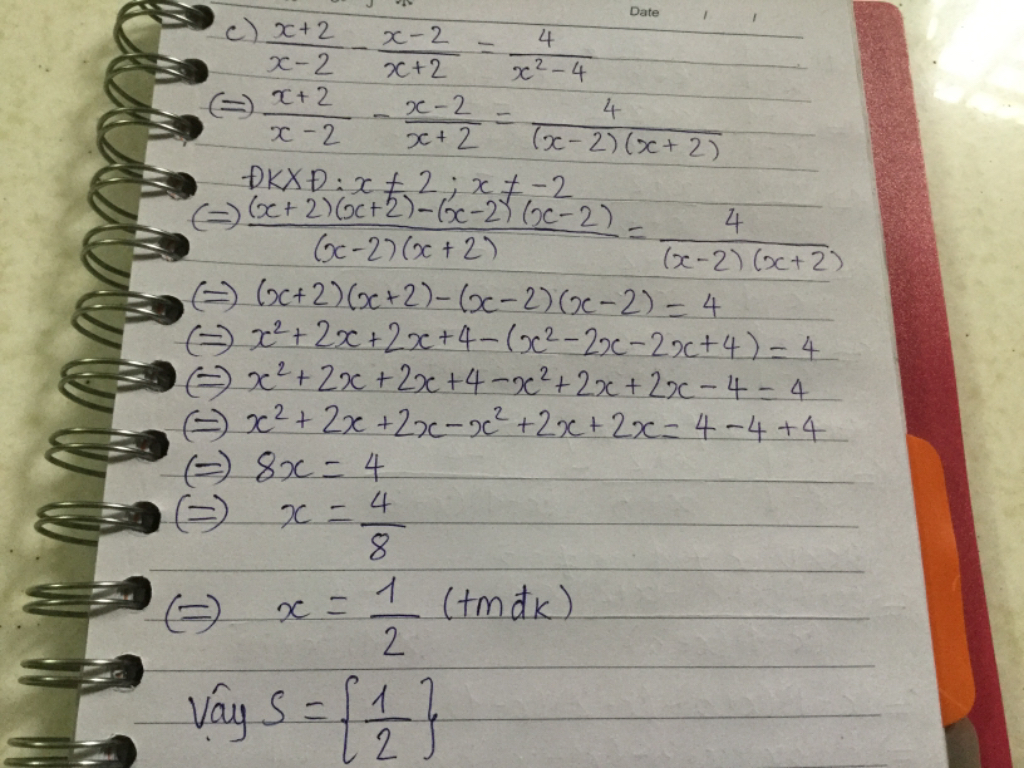 Date / /
c) \frac{x+2}{x-2} - \frac{x-2}{x+2} = \frac{4}{x²-4}
(=) \frac{x+2}{x-2} - \frac{x-2}{x+2} = \frac{4}{(x-2)(x+2)}
ĐKXĐ: x ≠ 2 ; x ≠ -2
(=) \frac{(x+2)(x+2)-(x-2)(x-2)}{(x-2)(x+2)} = \frac{4}{(x-2)(x+2)}
(=) (x+2)(x+2)-(x-2)(x-2) = 4
(=) x²+2x+2x+4-(x²-2x-2x+4) = 4
(=) x²+2x+2x+4-x²+2x+2x-4 = 4
(=) x²+2x+2x-x²+2x+2x = 4-4+4
(=) 8x = 4
(=) x = \frac{4}{8}
(=) x = \frac{1}{2} (tmđk)
Vậy S = {\frac{1}{2}}